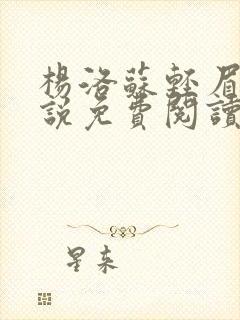 楊洛蘇輕眉
說免費閱讀
星來